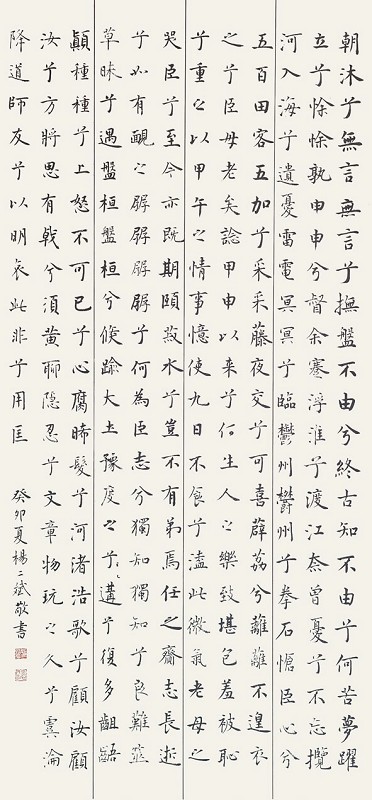 朝沐兮無言無言兮撫盤不由兮終古知不由兮何苦夢躍
立兮悇悇孰申申兮督余蹇浮淮兮渡江奈曾憂兮不忘攬
河入海兮遺憂雷電冥冥兮臨鬱州鬱州兮拳石愴臣心兮
五百田客五加兮采采藤夜交兮可喜薜荔兮離離不遑衣
之兮臣母老矣諗甲申以来兮何生人之樂致堪包羞被恥
兮重之以甲午之情事憶使九日不食兮溘此微氣老母之
哭臣兮至今亦既期頤菽水兮豈不有弟焉任之齎志長逝
兮如有靦之孱孱孱兮何為臣志兮獨知獨知兮良難並
草昧兮遇盤桓盤桓兮倏踰大土豫度之兮遘兮復多齟齬
顛種種兮上怒不可已兮心腐晞髮兮河渚浩歌兮顧汝顧
汝兮方將思有戟兮須黄聊隱忍兮文章物玩之久兮實淪
降道師友兮以明哀此非兮用匡
癸卯夏楊二斌敬書